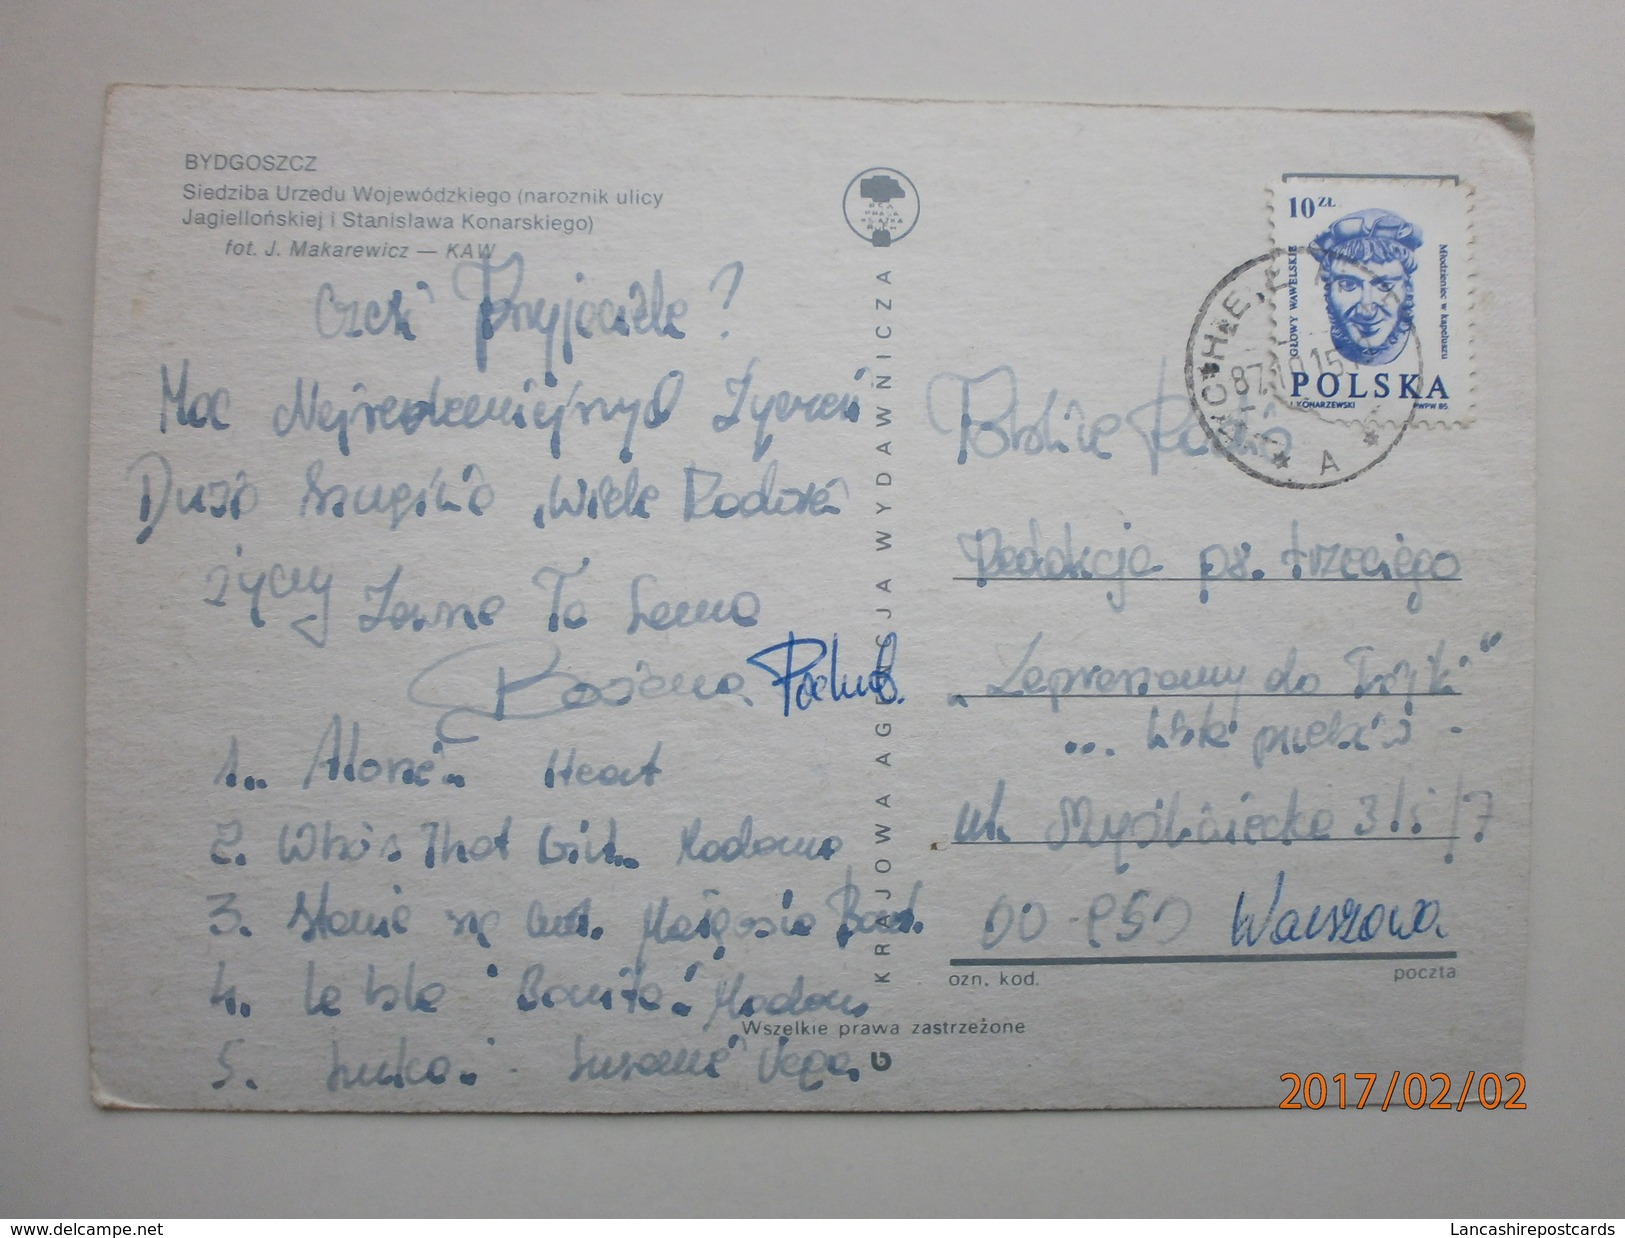 BYDGOSZCZ
Siedziba Urzędu Wojewódzkiego (narożnik ulicy
Jagiellońskiej i Stanisława Konarskiego)
fot. J. Makarewicz — KAW
Cześć Przyjaciele?
Moc Najserdeczniejszych Życzeń
Dużo Szczęścia, Wiele Radości
Życzy Zawsze Ta Sama
Bożena
1.. Alone.. Heart
2. Who's That Girl.. Madonna
3. Stanie się cud. Małgosia
4. La Isla Bonita
5. Luka Susanne Vega
KRAJOWA AGENCJA WYDAWNICZA
Wszelkie prawa zastrzeżone
10 ZŁ
GŁOWY WAWELSKIE
Młodzieniec w kapeluszu
POLSKA
J. KONARZEWSKI PWPW 85
87.10.15
A
Polskie Radio
Redakcja pr. trzeciego
„Zapraszamy do Trójki"
... lista przebojów -
ul. Myśliwiecka 3/5/7
00-950 Warszawa
ozn. kod. poczta
2017/02/02
www.delcampe.net
Lancashirepostcards